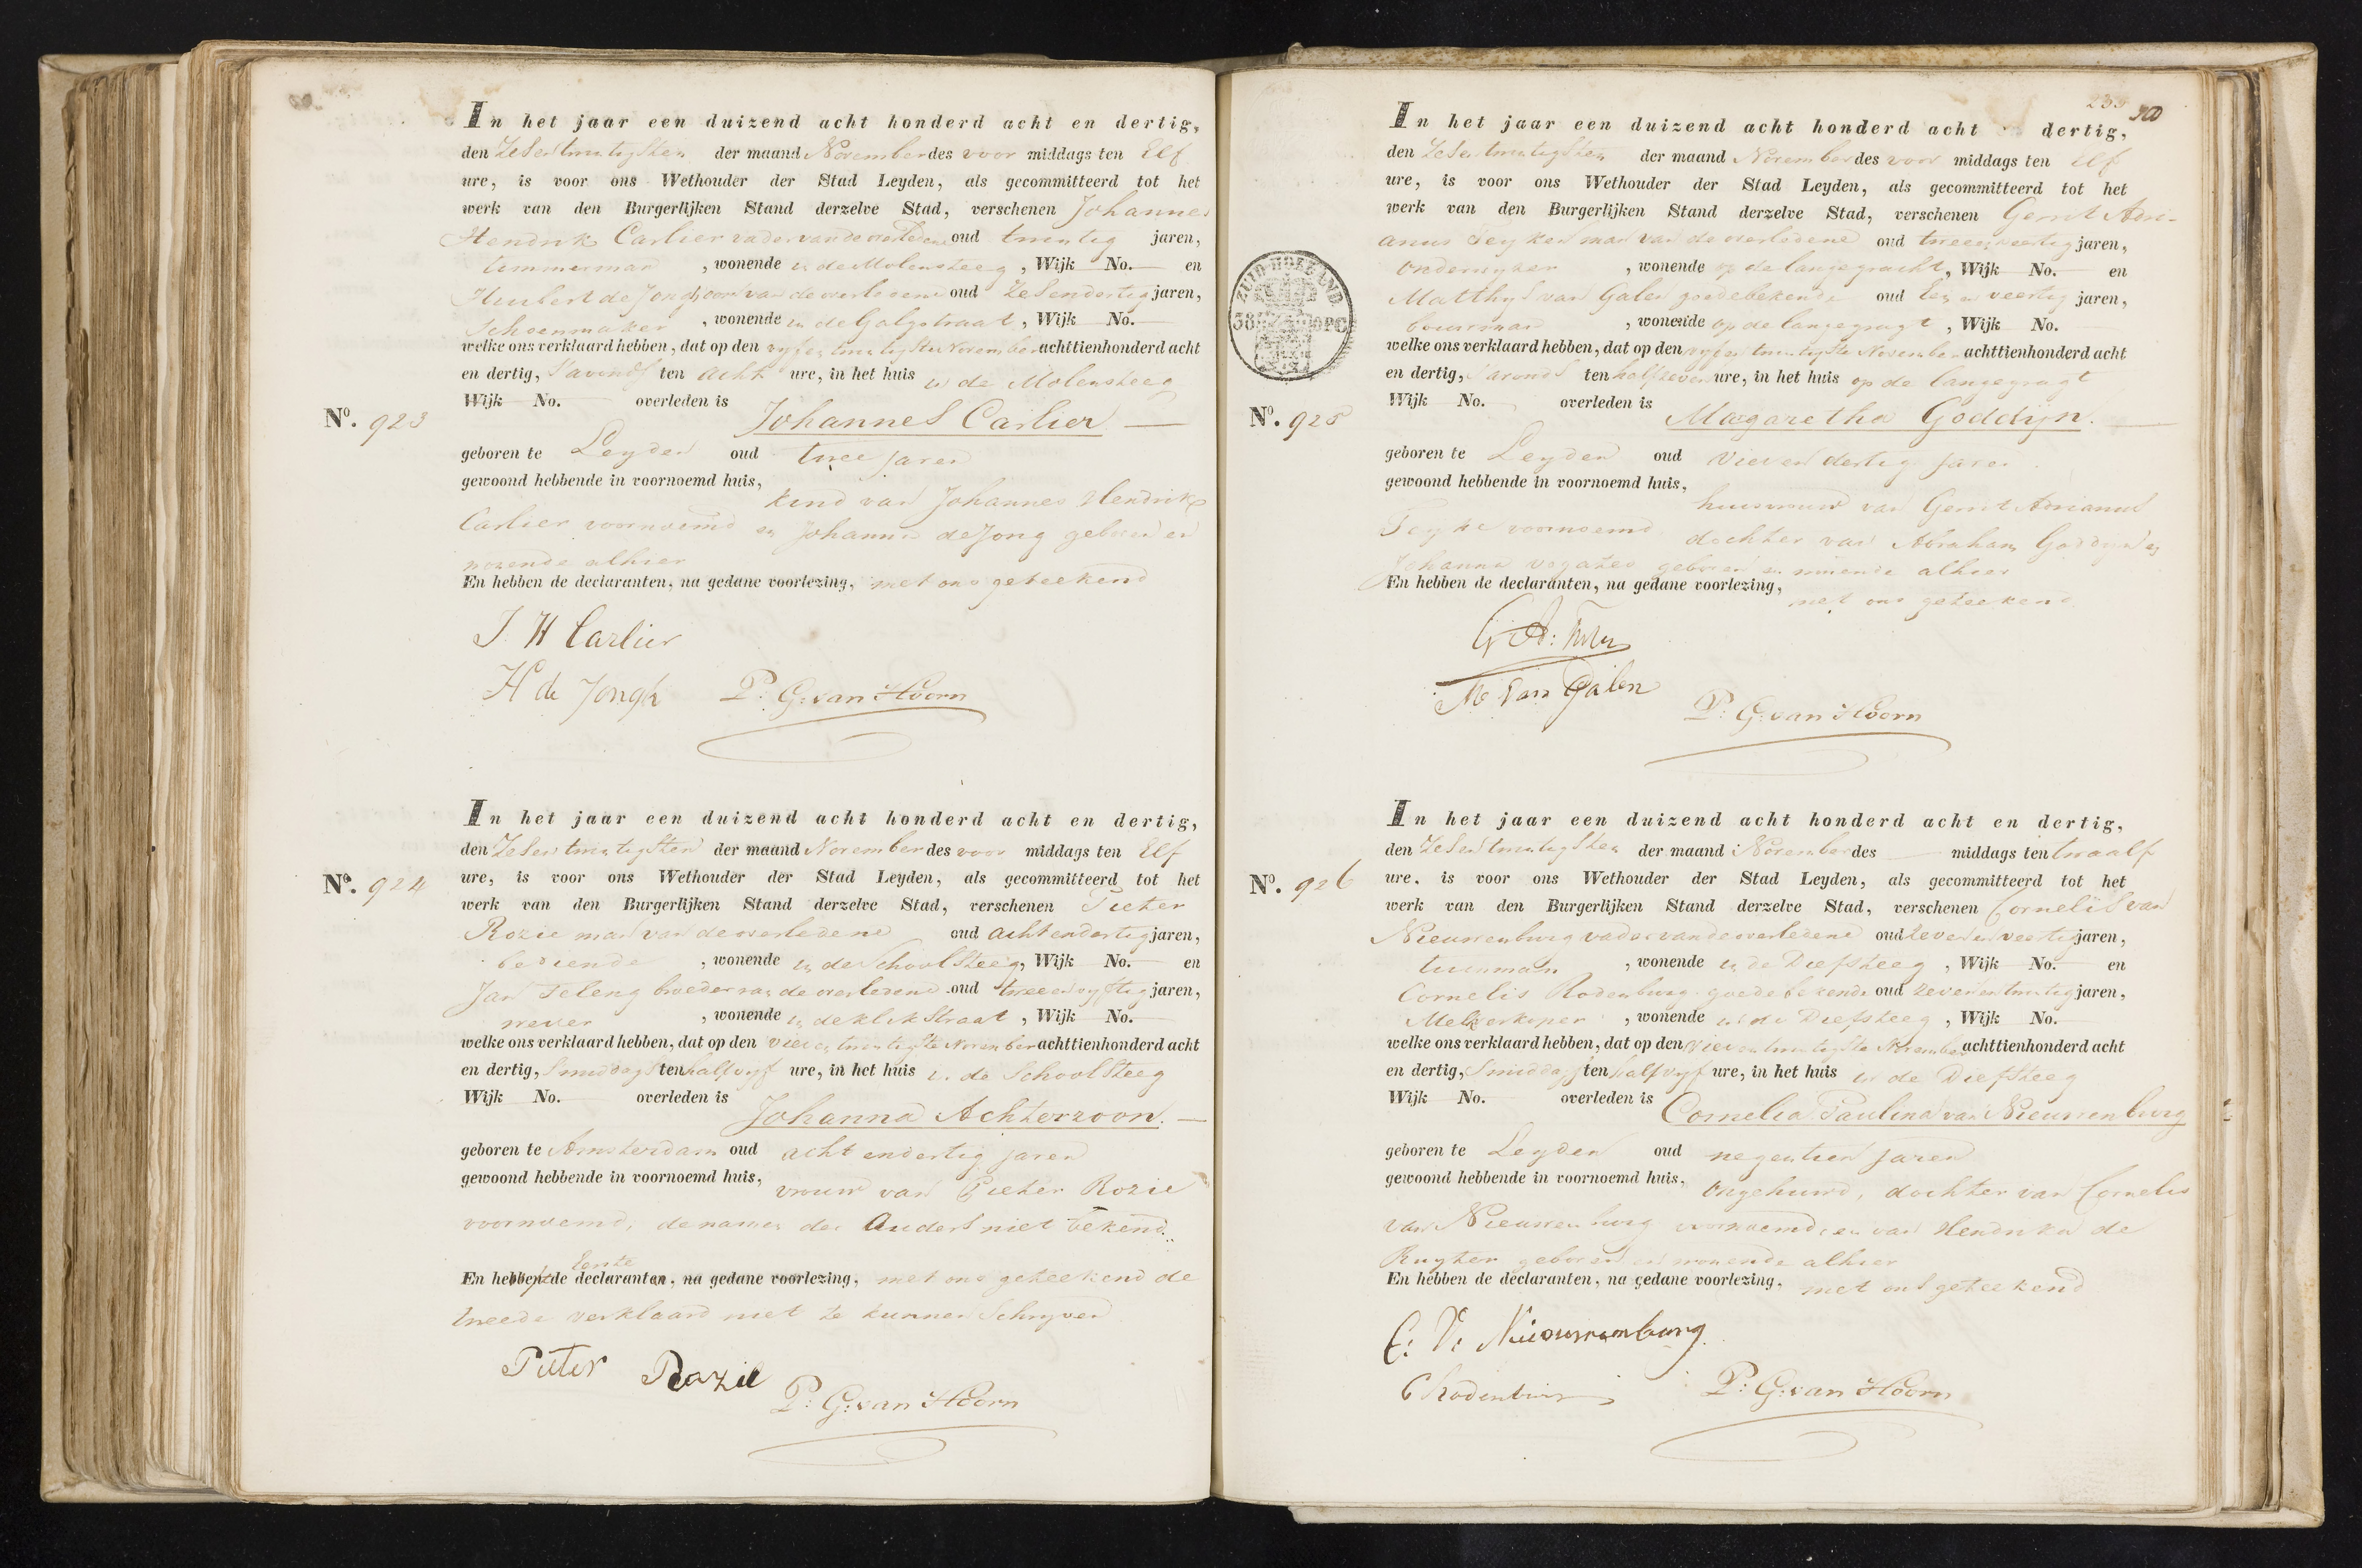 In het jaar een duizend acht honderd acht en dertig,
den Zesentwintigsten der maand November des voor middags ten Elf
ure, is voor ons Wethouder der Stad Leyden, als gecommitteerd tot het
werk van den Burgerlijken Stand derzelve Stad, verschenen Johannes
Hendrik Carlier vader van de overledene oud twintig jaren,
timmerman, wonende in de Molensteeg, Wijk No. en
Huibert de Jongh oom van de overledene oud Zesendertig jaren,
Schoenmaker, wonende in de Galgstraat, Wijk No.
welke ons verklaard hebben, dat op den vyfentwintigsten November achttienhonderd acht
en dertig, s'avonds ten acht ure, in het huis in de Molensteeg
Wijk No. overleden is
Nº. 923 Johannes Carlier
geboren te Leyden oud twee jaren
gewoond hebbende in voornoemd huis,
kind van Johannes Hendrik
Carlier voornoemd en Johanna de Jong geboren en
wonende alhier
En hebben de declaranten, na gedane voorlezing, met ons geteekend
J. H Carlier
H de Jongh P: G: van Hoorn
In het jaar een duizend acht honderd acht en dertig,
den Zesentwintigsten der maand November des voor middags ten Elf
Nº. 924 ure, is voor ons Wethouder der Stad Leyden, als gecommitteerd tot het
werk van den Burgerlijken Stand derzelve Stad, verschenen Pieter
Rozie man van de overledene oud achtendertig jaren,
bediende, wonende in de Schoolsteeg, Wijk No. en
Jan Teleng broeder van de overledene oud tweeenvyftig jaren,
wever, wonende in de klikstraat, Wijk No.
welke ons verklaard hebben, dat op den vierentwintigste November achttienhonderd acht
en dertig, Smiddags ten half vyf ure, in het huis in de Schoolsteeg
Wijk No. overleden is
Johanna Achterzoon.
geboren te Amsterdam oud acht endertig jaren
gewoond hebbende in voornoemd huis,
vrouw van Pieter Rozie
voornoemd, de namen der Ouders niet bekend.
Eerste
En hebben de declaranten, na gedane voorlezing, met ons geteekend de
tweede verklaard niet te kunnen Schryven
Pieter Rozie
P: G: van Hoorn
235 300
In het jaar een duizend acht honderd acht dertig,
den Zesentwintigsten der maand November des voor middags ten Elf
ure, is voor ons Wethouder der Stad Leyden, als gecommitteerd tot het
werk van den Burgerlijken Stand derzelve Stad, verschenen Gerrit Adri-
anus man van de overledene oud tweeenveertig jaren,
onderwyzer, wonende op de langegracht, Wijk No. en
Matthys van Galen goedebekende oud Een en veertig jaren,
bouwman, wonende op de langegragt, Wijk No.
ZUID HOLLAND
38 OPC
welke ons verklaard hebben, dat op den vyfentwintigste November achttienhonderd acht
en dertig, s'avonds ten halfzeven ure, in het huis op de langegragt
Wijk No. overleden is
Nº. 925 Magaretha Goddijn.
geboren te Leyden oud Vierendertig jaren
gewoond hebbende in voornoemd huis,
huisvrouw van Gerrit Adrianus
voornoemd dochter van Abraham Goddijn en
Johanna geboren en wonende alhier
En hebben de declaranten, na gedane voorlezing,
met ons geteekend
G A:
M Van Galen
P: G: van Hoorn
In het jaar een duizend acht honderd acht en dertig,
den Zesentwintigsten der maand November des middags ten twaalf
Nº. 926 ure, is voor ons Wethouder der Stad Leyden, als gecommitteerd tot het
werk van den Burgerlijken Stand derzelve Stad, verschenen Cornelis van
Nieuwenburg vader van de overledene oud Zevenenveertig jaren,
tuinman, wonende in de Diefsteeg, Wijk No. en
Cornelis Rodenburg goede bekende oud zevenentwintig jaren,
Melkverkoper, wonende in de Diefsteeg, Wijk No.
welke ons verklaard hebben, dat op den vierentwintigste November achttienhonderd acht
en dertig, Smiddags ten half vyf ure, in het huis in de Diefsteeg
Wijk No. overleden is
Cornelia Paulina van Nieuwenburg
geboren te Leyden oud negentien jaren
gewoond hebbende in voornoemd huis,
Ongehuwd, dochter van Cornelis
van Nieuwenburg voornoemd, en van Hendrika de
Ruyter geboren en wonende alhier
En hebben de declaranten, na gedane voorlezing, met ons geteekend
C: V: Nieuwenburg
C Rodenburg P: G: van Hoorn